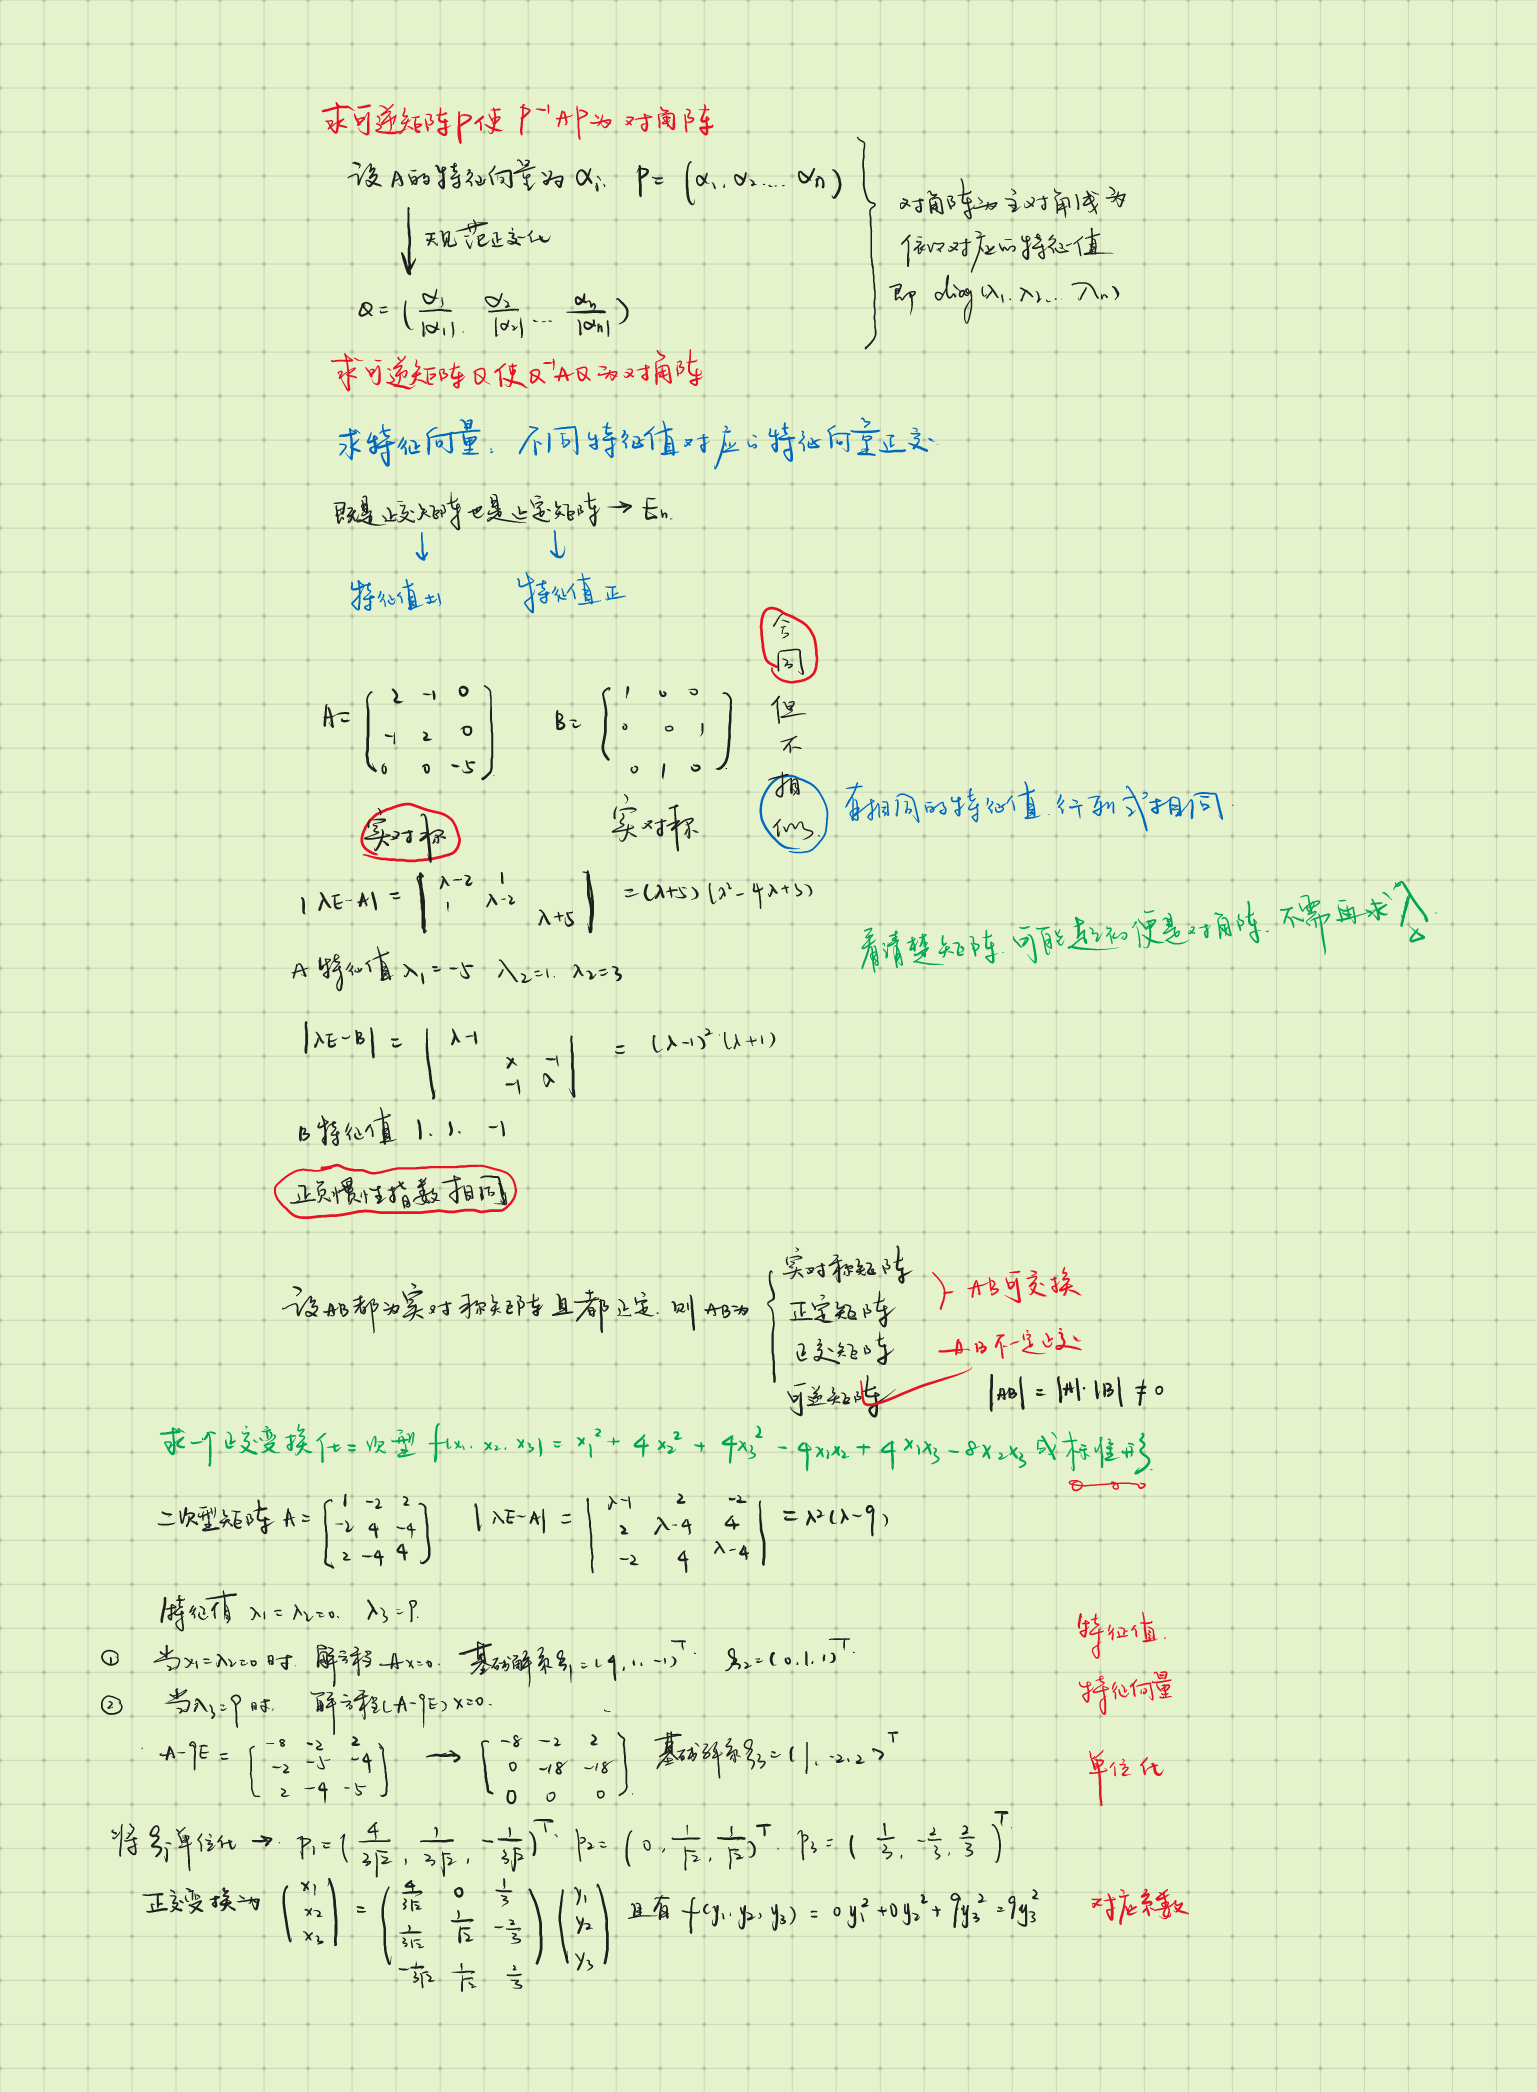 求可逆矩阵P使 P⁻¹AP为对角阵
设A的特征向量为αi. P=(α₁,α₂…,αn)
规范正交化
Q=(α₁/|α₁|, α₂/|α₂| … αn/|αn|)
对角阵为主对角线为
依次对应的特征值
即 diag(λ₁,λ₂…λn)
求可逆矩阵Q使Q⁻¹AQ为对角阵
求特征向量: 不同特征值对应的特征向量正交.
既是正交矩阵也是正定矩阵→En.
↓ ↓
特征值±1 特征值正
A=[2 -1 0; -1 2 0; 0 0 -5] B=[1 0 0; 0 0 1; 0 1 0]
合同但不相似
有相同的特征值.行列式相同.
实对称 实对称
|λE-A|=|λ-2 1; 1 λ-2; λ+5|=(λ+5)(λ²-4λ+3)
看清楚矩阵.可能起初便是对角阵.不需再求λ.
A特征值λ₁=-5 λ₂=1. λ₂=3
|λE-B|=|λ-1; λ -1; -1 λ|=(λ-1)²(λ+1)
B特征值 1. 1. -1
正负惯性指数相同
设AB都为实对称矩阵且都正定.则AB为
实对称矩阵
正定矩阵
} AB可交换
正交矩阵 AB不一定正交
可逆矩阵 |AB|=|A|·|B|≠0
求一个正交变换化二次型f(x₁.x₂.x₃)=x₁²+4x₂²+4x₃²-4x₁x₂+4x₁x₃-8x₂x₃成标准形
二次型矩阵A=[1 -2 2; -2 4 -4; 2 -4 4] |λE-A|=|λ-1 2 -2; 2 λ-4 4; -2 4 λ-4|=λ²(λ-9)
特征值 λ₁=λ₂=0. λ₃=9.
特征值.
① 当λ₁=λ₂=0时.解方程Ax=0. 基础解系ξ₁=(4,1,-1)ᵀ. ξ₂=(0,1,1)ᵀ.
特征向量
② 当λ₃=9时. 解方程(A-9E)x=0.
A-9E=[-8 -2 2; -2 -5 -4; 2 -4 -5] → [-8 -2 2; 0 -18 -18; 0 0 0] 基础解系ξ₃=(1,-2,2)ᵀ
单位化
将ξi单位化→ P₁=(4/3√2, 1/3√2, -1/3√2)ᵀ. P₂=(0, 1/√2, 1/√2)ᵀ. P₃=(1/3, -2/3, 2/3)ᵀ
正交变换为(x₁; x₂; x₃)=(4/3√2 0 1/3; 1/3√2 1/√2 -2/3; -1/3√2 1/√2 2/3)(y₁; y₂; y₃) 且有f(y₁,y₂,y₃)=0y₁²+0y₂²+9y₃²=9y₃²
对应系数